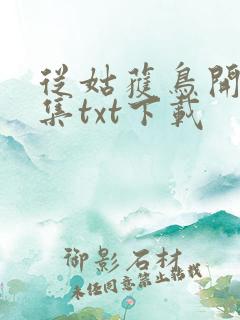 從姑獲鳥開
集txt下載
御影石材
未经同意禁止转载